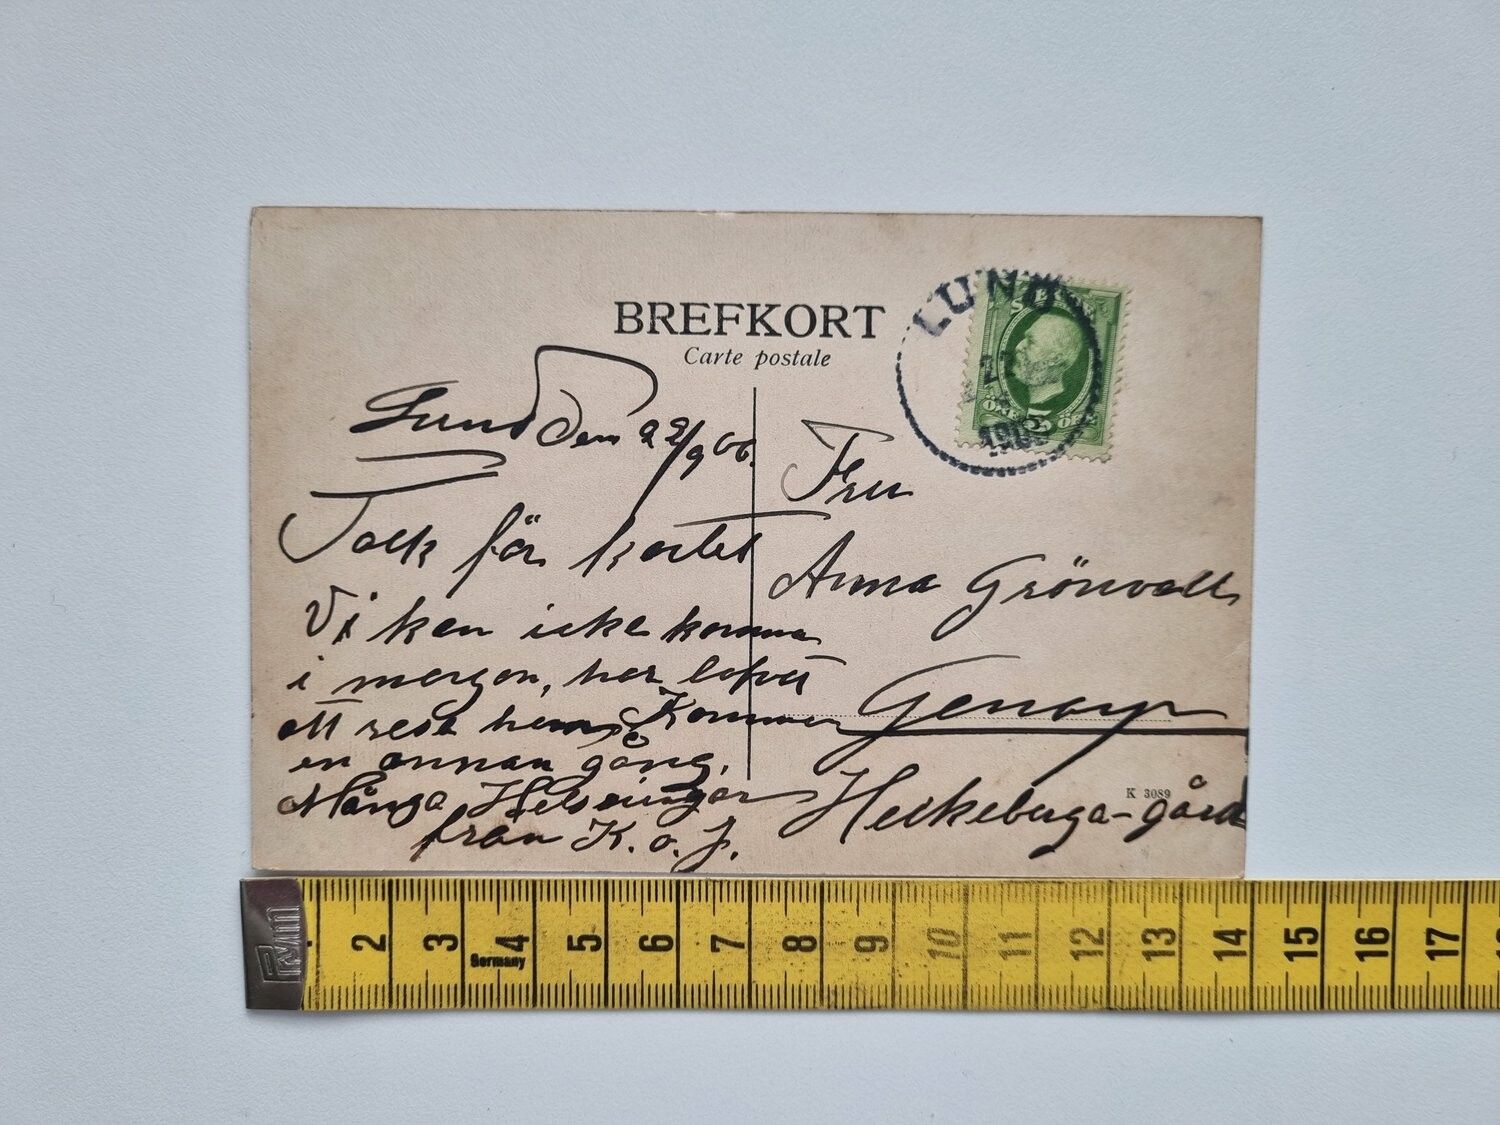 BREFKORT
Carte postale
LUND
22
1906
SVERIGE
ÖRE 5 ÖRE
Lund den 22/9 06.
Tack för kortet
Vi kan icke komma
i morgon, har lofvat
att resa hem Kommer
en annan gång.
Många Helsningar
från K. o. J.
Fru
Anna Grönvall
Genarp
Heckeberga-gård
K 3089
PRYM
2 3 4 5 6 7 8 9 10 11 12 13 14 15 16 17
Germany